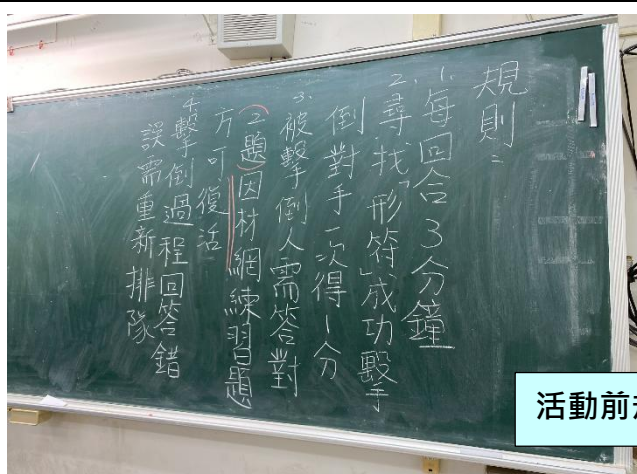 規則：
1. 每回合3分鐘
2. 尋找「形符」成功擊
倒對手一次得1分
3. 被擊倒人需答對
(2題)因材網練習題
方可復活
4. 擊倒過程回答錯
誤需重新排隊
活動前